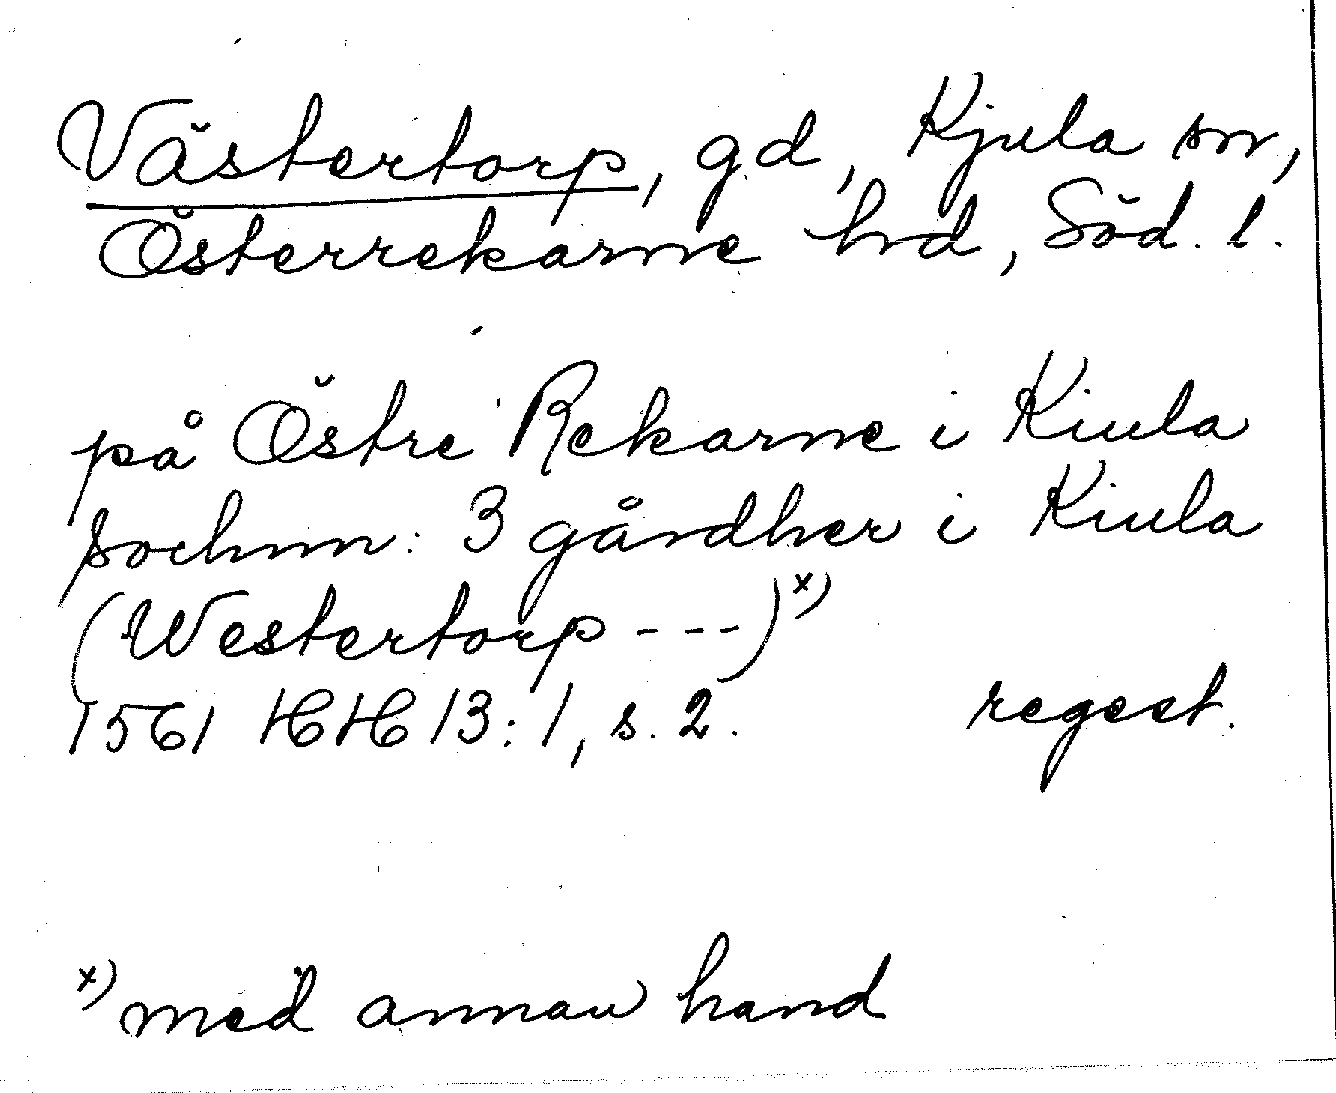 Västertorp, gd, Kjula sn,
Österrekarne hd, Söd. l.
på Östre Rekarne i Kiula
sochnn: 3 gårdher i Kiula
(Westertorp ---)x)
1561 HH 13:1, s. 2. regest.
x) med annan hand